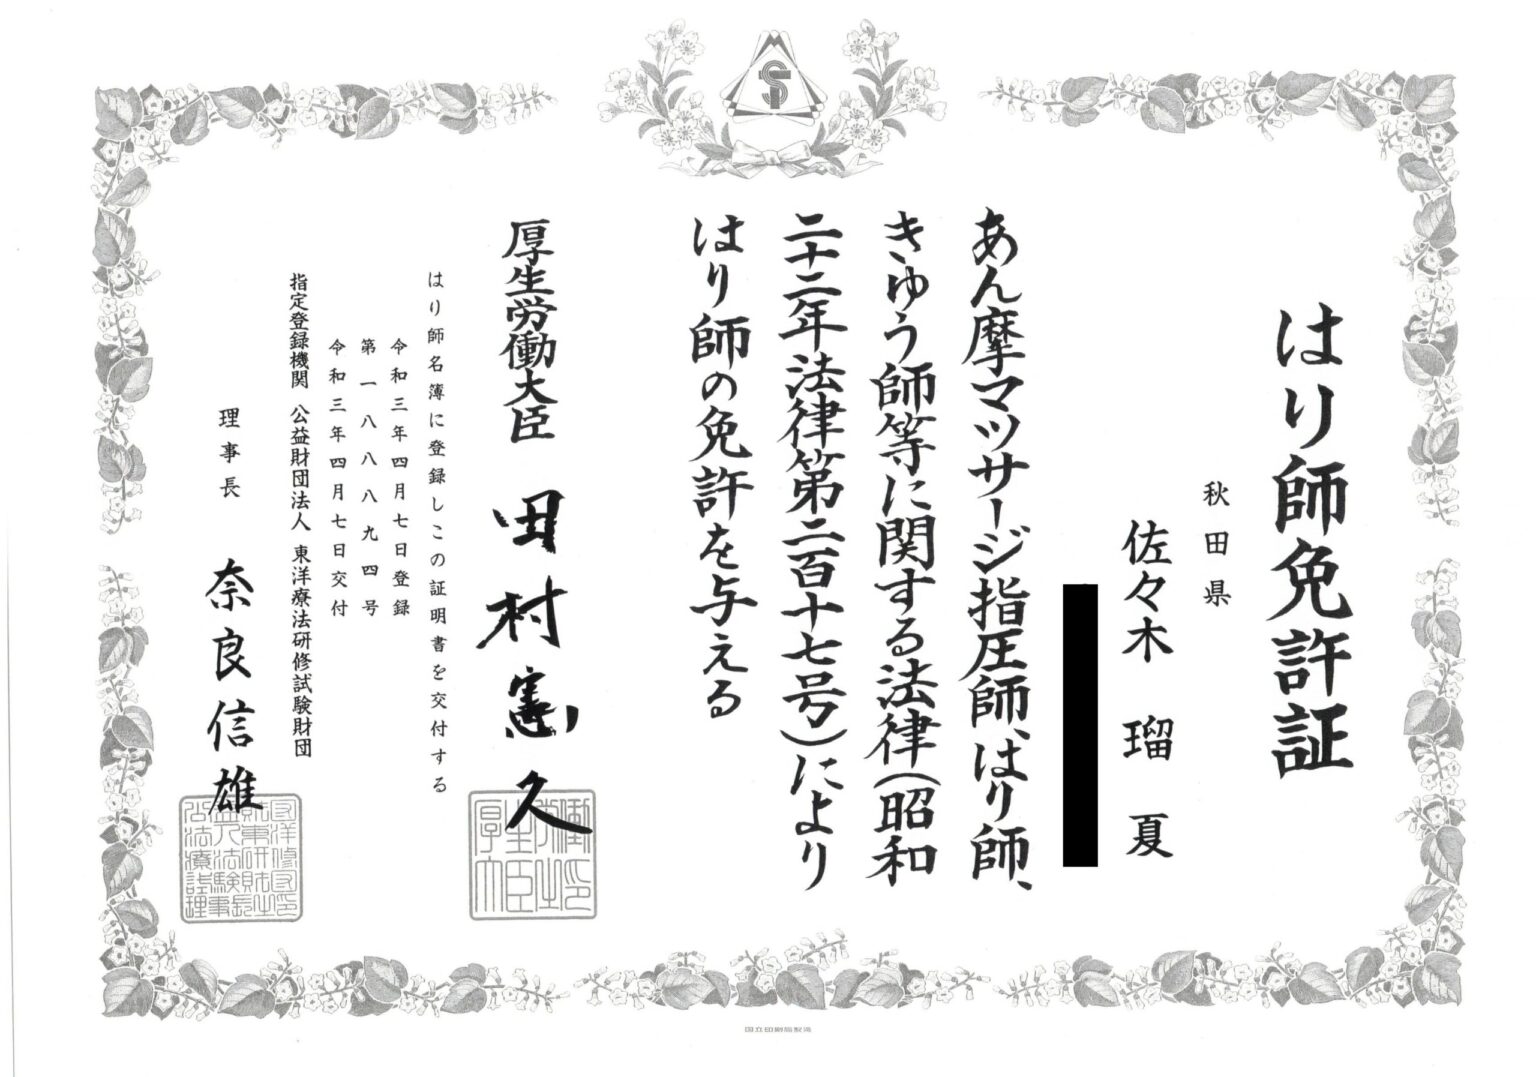 はり師免許証
秋田県
佐々木 瑠夏
あん摩マツサージ指圧師、はり師、
きゆう師等に関する法律(昭和
二十二年法律第二百十七号)により
はり師の免許を与える
厚生労働大臣 田村憲久
はり師名簿に登録しこの証明書を交付する
令和三年四月七日登録
第一八八八九四号
令和三年四月七日交付
指定登録機関 公益財団法人 東洋療法研修試験財団
理事長 奈良信雄
国立印刷局製造